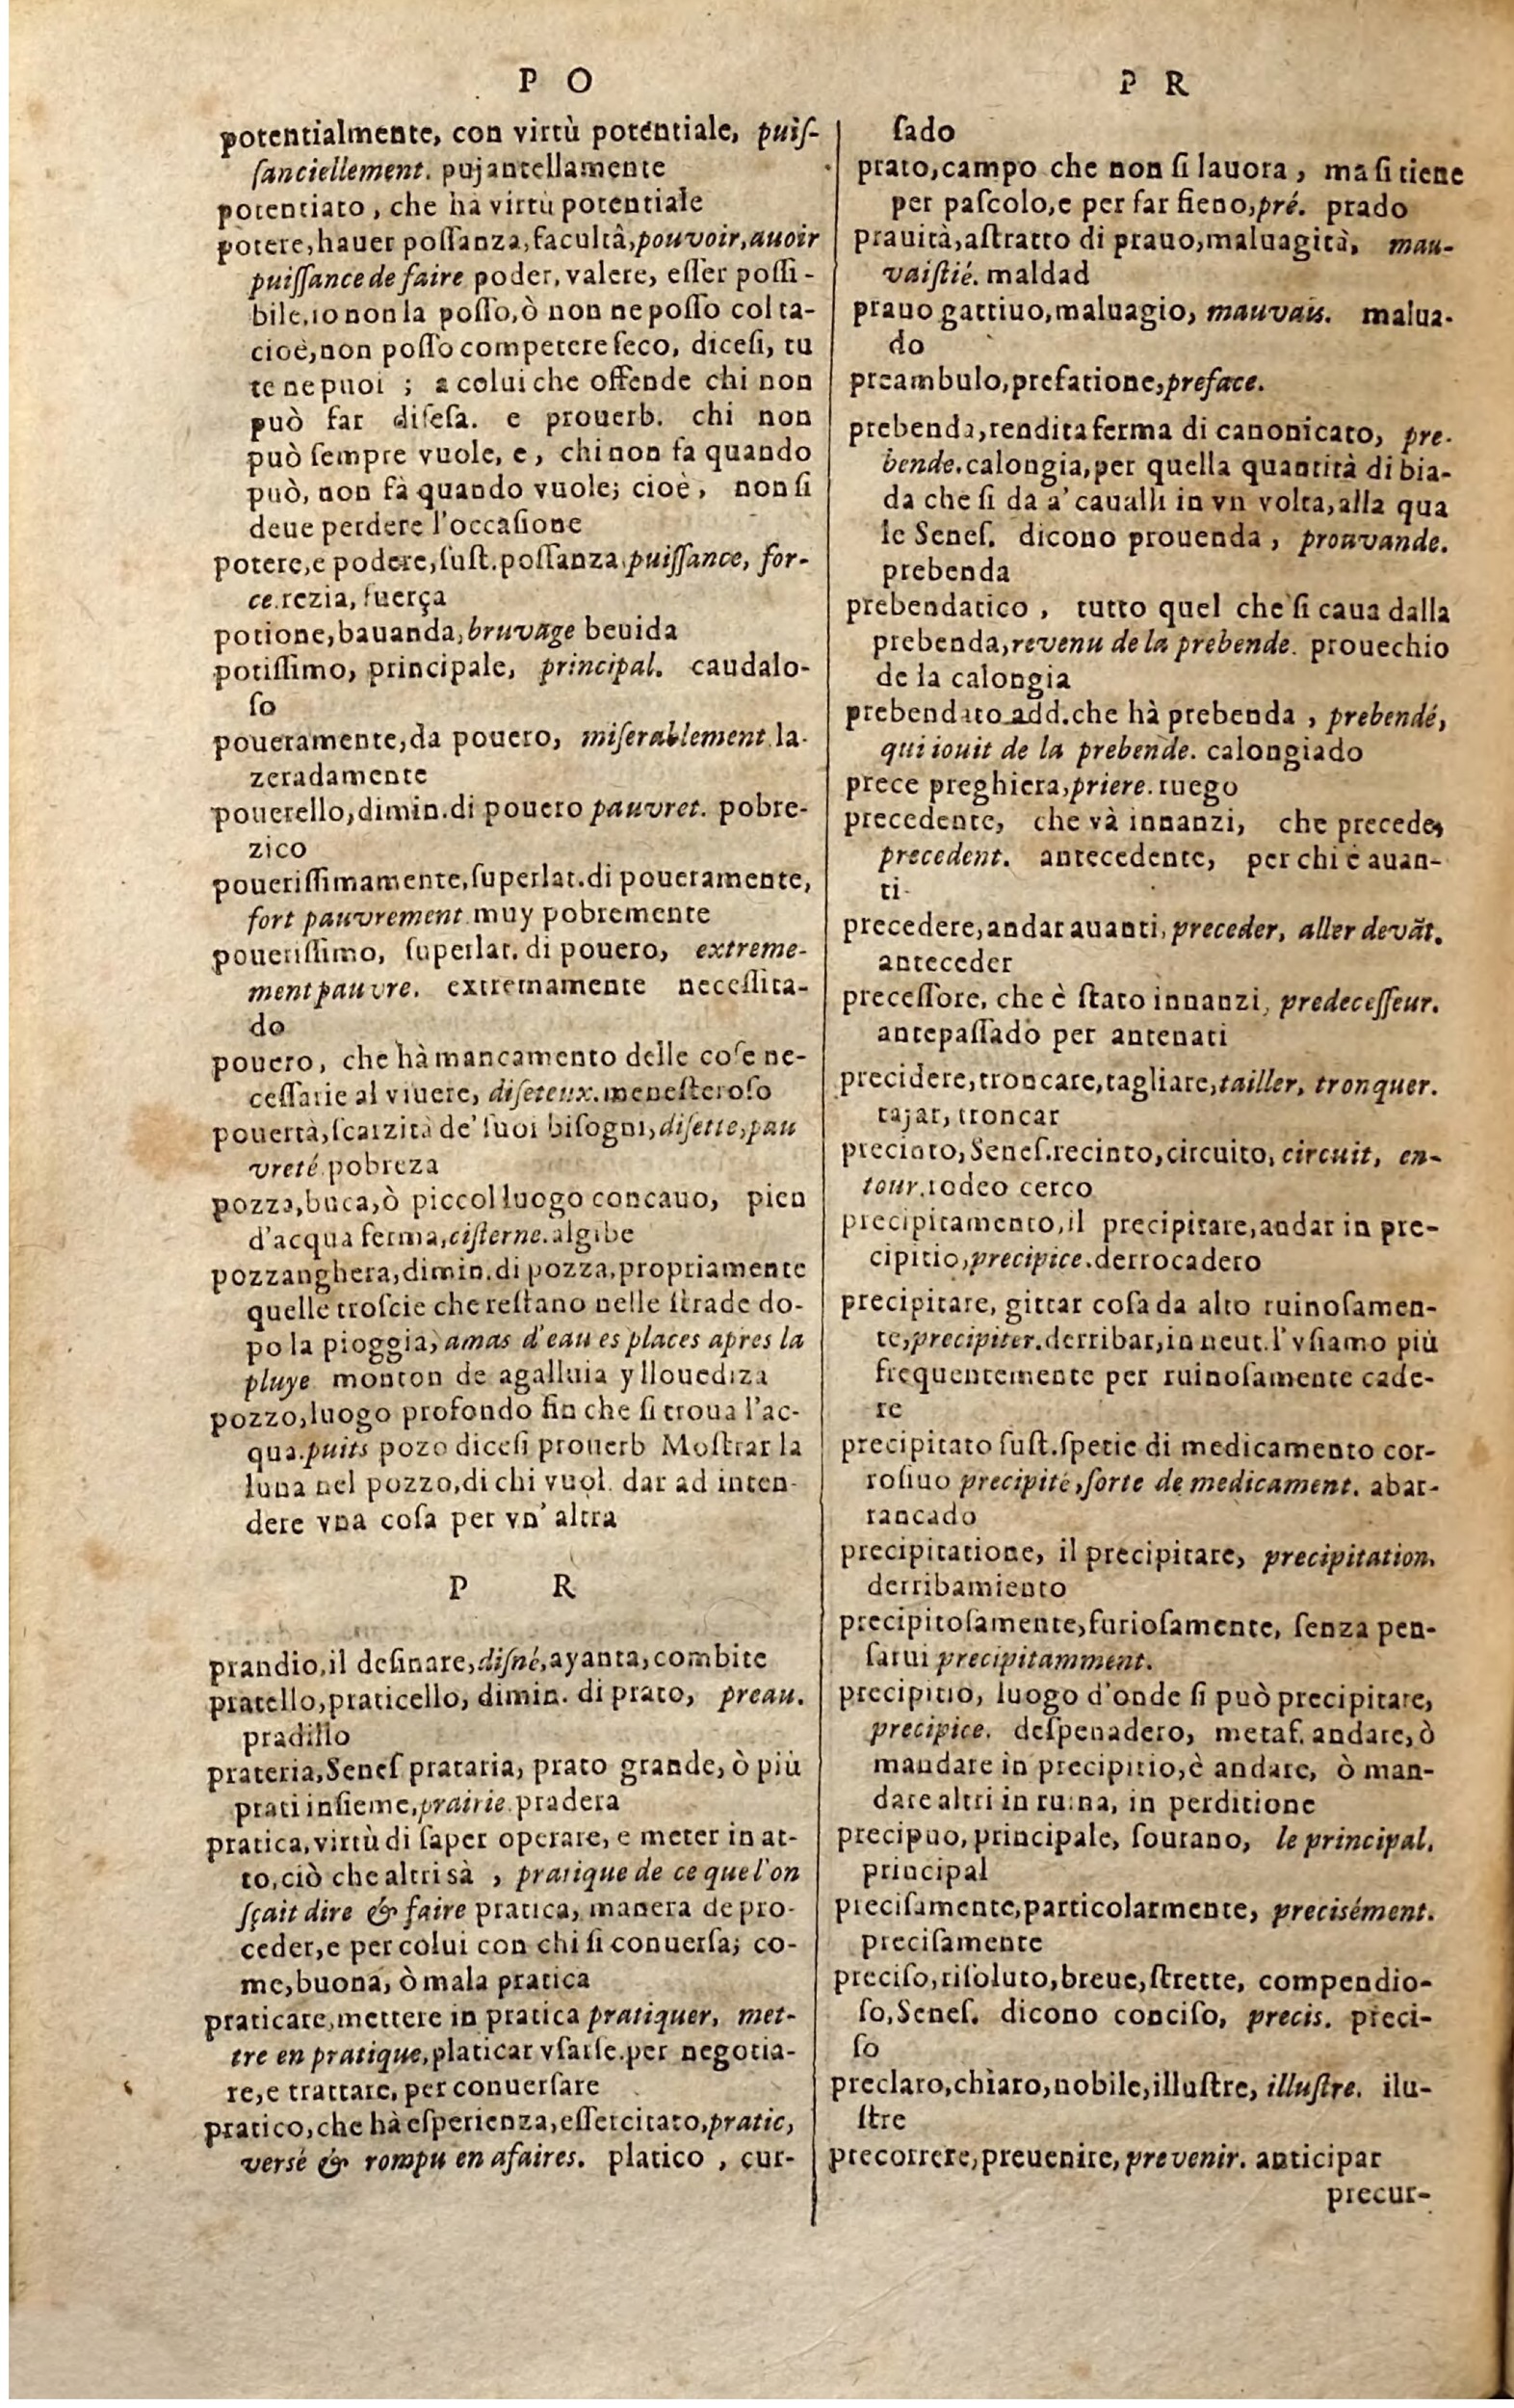 P O
potentialmente, con virtù potentiale, puiſ-
ſanciellement. pujantellamente
potentiato, che ha virtù potentiale
potere, hauer poſſanza, facultâ, pouvoir, auoir
puiſſance de faire poder, valere, eſſer poſſi-
bile, io non la poſſo, ò non ne poſſo col ta-
cioè, non poſſo competere ſeco, diceſi, tu
te ne puoi ; a colui che offende chi non
può far difeſa. e prouerb. chi non
può ſempre vuole, e, chi non fa quando
può, non fà quando vuole; cioè, non ſi
deue perdere l'occaſione
potere, e podere, ſuſt. poſſanza puiſſance, for-
ce. rezia, fuerça
potione, bauanda, bruvage beuida
potiſſimo, principale, principal. caudalo-
ſo
poueramente, da pouero, miſerablement la-
zeradamente
pouerello, dimin. di pouero pauvret. pobre-
zico
poueriſſimamente, ſuperlat. di poueramente,
fort pauvrement muy pobremente
poueriſſimo, ſuperlat. di pouero, extreme-
ment pauvre. extremamente neceſſita-
do
pouero, che hà mancamento delle coſe ne-
ceſſarie al viuere, diſeteux. meneſteroſo
pouertà, ſcarzità de' ſuoi biſogni, diſette, pau
vreté pobreza
pozza, buca, ò piccol luogo concauo, pien
d'acqua ferma, ciſterne. algibe
pozzanghera, dimin. di pozza, propriamente
quelle troſcie che reſtano nelle ſtrade do-
po la pioggia, amas d'eau es places apres la
pluye monton de agalluia y llouediza
pozzo, luogo profondo fin che ſi troua l'ac-
qua. puits pozo diceſi prouerb Moſtrar la
luna nel pozzo, di chi vuol dar ad inten-
dere vna coſa per vn' altra
P R
prandio, il deſinare, diſné, ayanta, combite
pratello, praticello, dimin. di prato, preau.
pradillo
prateria, Seneſ prataria, prato grande, ò più
prati inſieme, prairie. pradera
pratica, virtù di ſaper operare, e meter in at-
to, ciò che altri sà , pratique de ce que l'on
ſçait dire & faire pratica, manera de pro-
ceder, e per colui con chi ſi conuerſa; co-
me, buona, ò mala pratica
praticare, mettere in pratica pratiquer, met-
tre en pratique, platicar vſarſe. per negotia-
re, e trattare, per conuerſare
pratico, che hà eſperienza, eſſercitato, pratic,
versé & rompu en afaires. platico , cur-
P R
ſado
prato, campo che non ſi lauora , ma ſi tiene
per paſcolo, e per far fieno, pré. prado
prauità, aſtratto di prauo, maluagità, mau-
vaiſtié. maldad
prauo gattiuo, maluagio, mauvais. malua-
do
preambulo, prefatione, preface.
prebenda, rendita ferma di canonicato, pre-
bende. calongia, per quella quantità di bia-
da che ſi da a' caualli in vn volta, alla qua
le Seneſ. dicono prouenda , prouvande.
prebenda
prebendatico , tutto quel che ſi caua dalla
prebenda, revenu de la prebende. prouechio
de la calongia
prebendato add. che hà prebenda , prebendé,
qui iouit de la prebende. calongiado
prece preghiera, priere. ruego
precedente, che và innanzi, che precede,
precedent. antecedente, per chi è auan-
ti
precedere, andar auanti, preceder, aller devãt.
anteceder
preceſſore, che è ſtato innanzi, predeceſſeur.
antepaſſado per antenati
precidere, troncare, tagliare, tailler, tronquer.
tajar, troncar
precinto, Seneſ. recinto, circuito, circuit, en-
tour. rodeo cerco
precipitamento, il precipitare, andar in pre-
cipitio, precipice. derrocadero
precipitare, gittar coſa da alto ruinoſamen-
te, precipiter. derribar, in neut. l'vſiamo più
frequentemente per ruinoſamente cade-
re
precipitato ſuſt. ſpetie di medicamento cor-
roſiuo precipité, ſorte de medicament. abar-
rancado
precipitatione, il precipitare, precipitation.
derribamiento
precipitoſamente, furioſamente, ſenza pen-
ſarui precipitamment.
precipitio, luogo d'onde ſi può precipitare,
precipice. deſpenadero, metaf. andare, ò
mandare in precipitio, è andare, ò man-
dare altri in ruina, in perditione
precipuo, principale, ſourano, le principal.
principal
preciſamente, particolarmente, precisément.
preciſamente
preciſo, riſoluto, breue, ſtrette, compendio-
ſo, Seneſ. dicono conciſo, precis. preci-
ſo
preclaro, chiaro, nobile, illuſtre, illuſtre. ilu-
ſtre
precorrere, preuenire, prevenir. anticipar
precur-